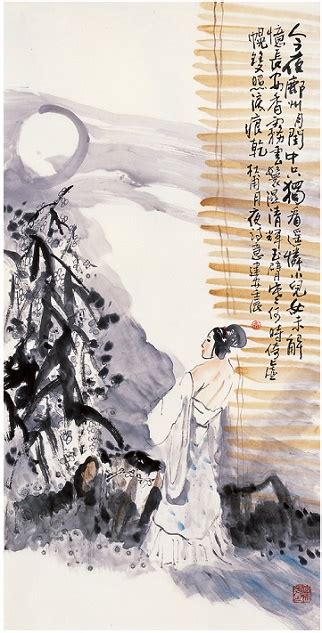 今夜鄜州月閨中只獨看遥憐小兒女未解
憶長安香霧雲鬟濕清輝玉臂寒何時倚虛
幌雙照淚痕乾 杜甫月夜诗意建安